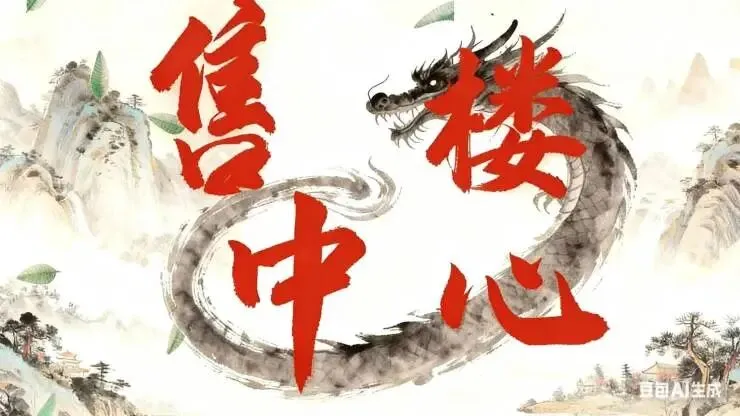 售楼
中心
豆包AI生成